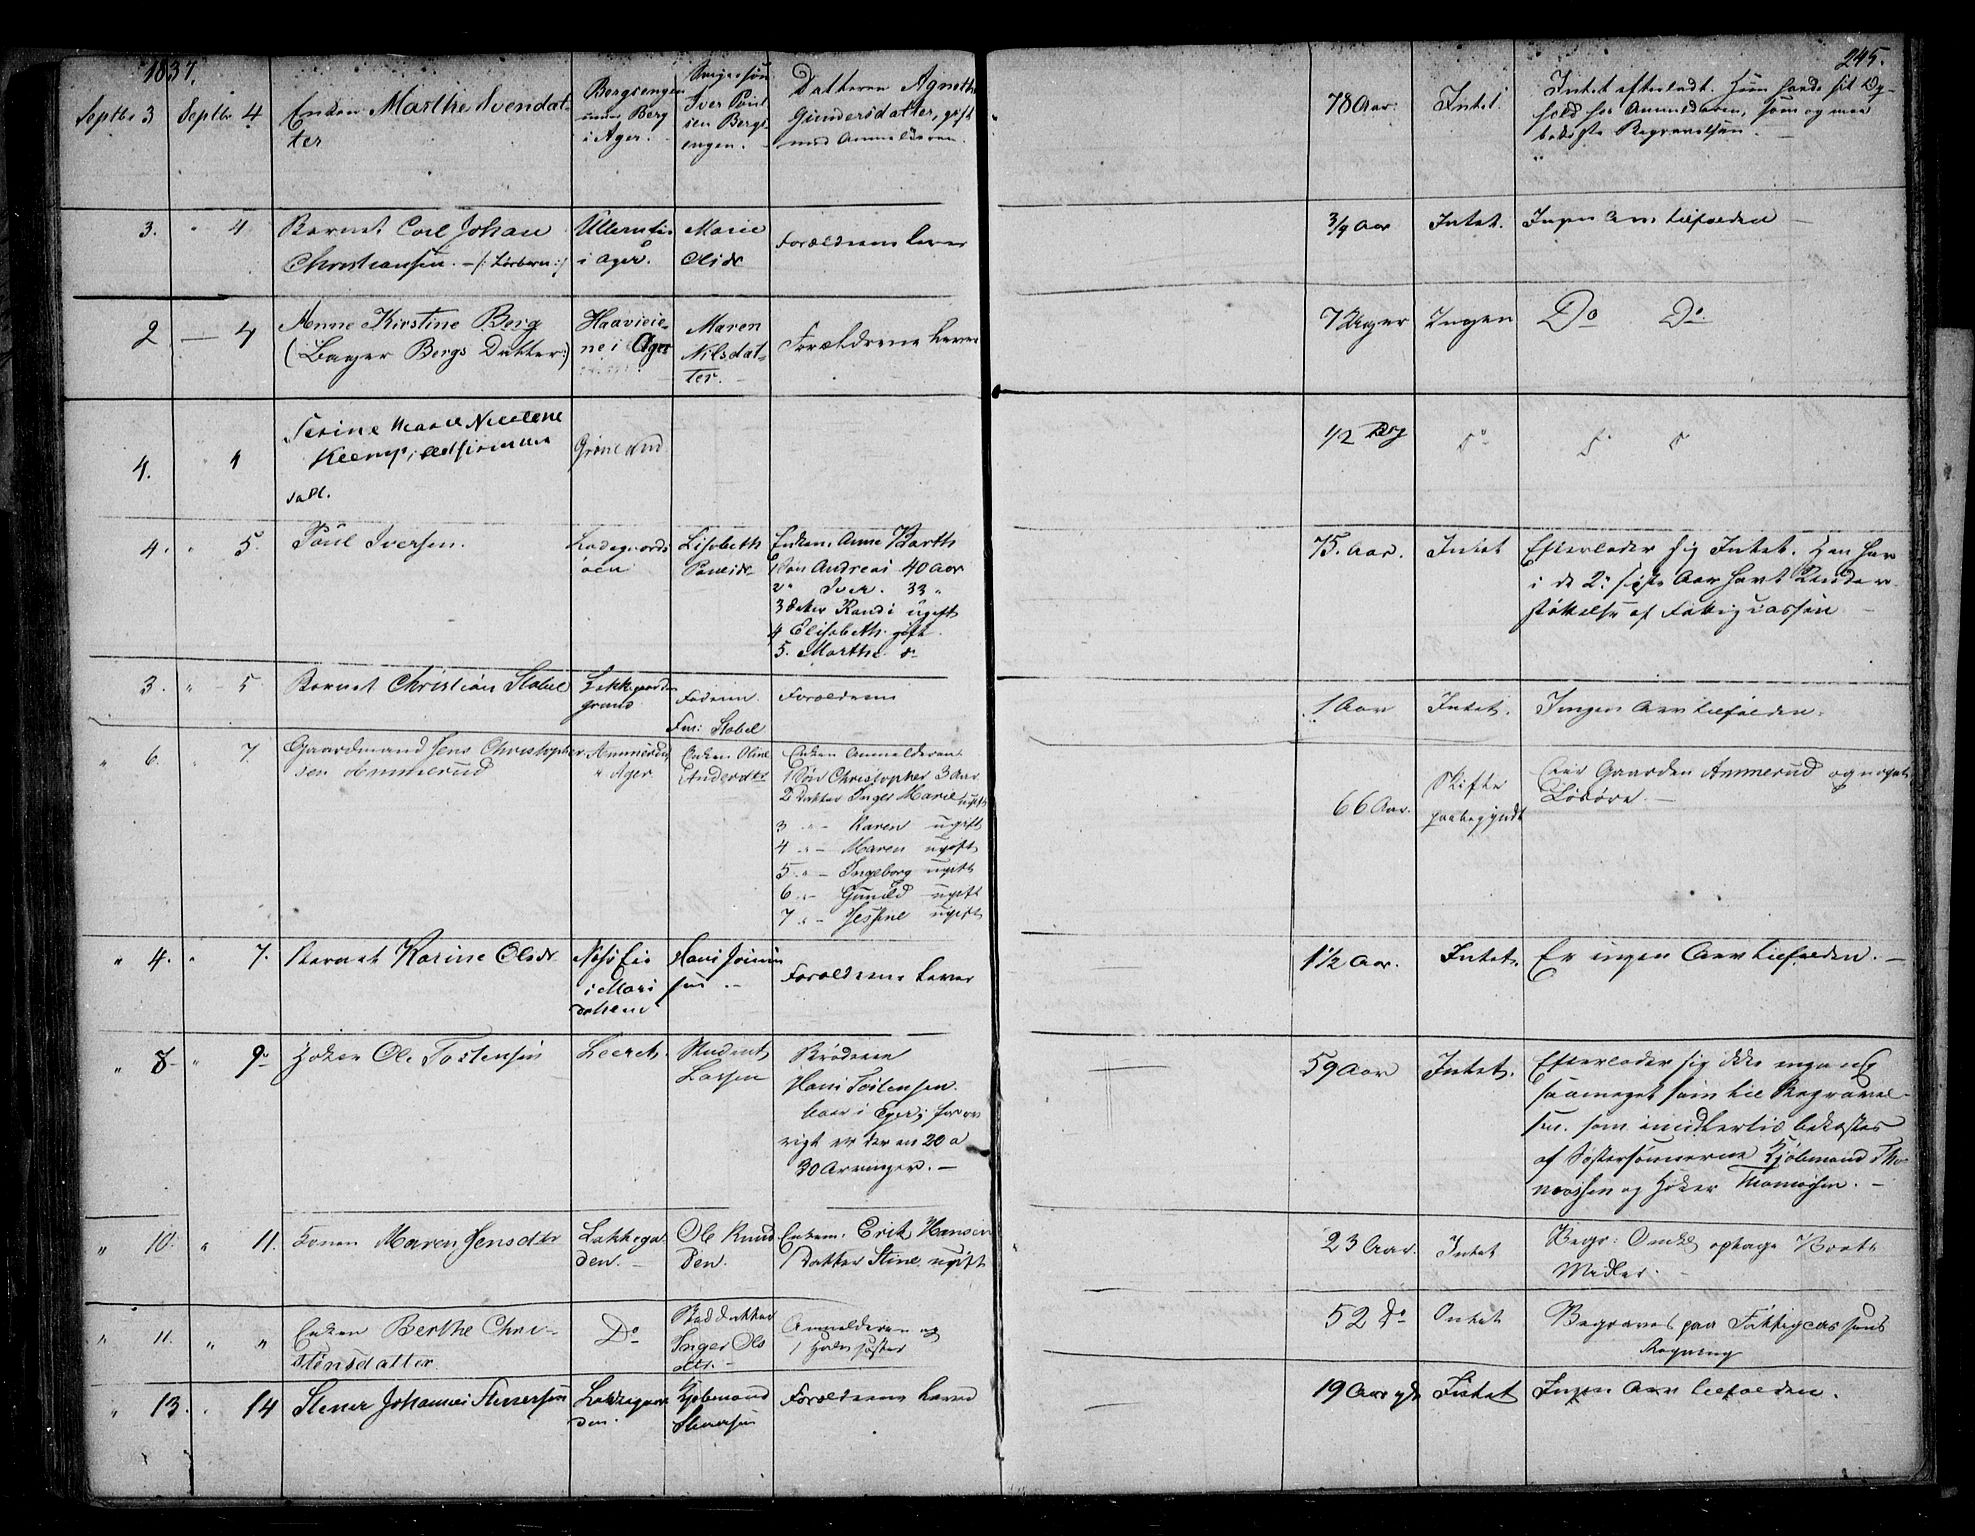 1837.
245.
Septbr 3 Septbr 4 Enken Marthe Svendat-
ter
Bergsengen
under Berg
i Ager.
Svigersøn
Iver Poul
sen Bergs
engen.
Datteren Agnethe
Gundersdatter, gift
med Anmelderen.
78 Aar. Intet.
Intet efterladt. Hun havde sit Op-
hold hos Anmelderen, som og maa
bekoste Begravelsen.
3. " 4 Barnet Carl Johan
Christiansen. - /: Løsbarn :/
Ullerneie
i Ager.
Marie
Olsdr
Forældrene lever
3/4 Aar Intet. Ingen Arv tilfalden
2 — 4 Anne Kirstine Berg
(Bager Bergs Datter:)
Haavieie-
ne i Ager
Maren
Nilsdat-
ter.
Forældrene lever
7 Uger Ingen Do Do
4. " 4 Marie Nicoline
Kemp,
Grønland
1/2 Do
4. " 5. Poul Iversen.
Ladegaards
øen
Lisabeth
Poulsdr
Enken Anne Barth
1 Søn Andreas 40 Aar
2 " Iver. 33 "
3 Datter Randi ugift
4 Elisabeth gift
5. Marthe do
75. Aar. Intet Efterlader sig Intet. Han har
i de 2de sidste Aar havt Under-
støttelse af Fattigcassen
3. " 5 Barnet Christian Stabel
Lakkegaards
grund
Faderen
Stabel
Forældrene
1 Aar Intet. Ingen Arv tilfalden.
" 6. " 7. Gaardmand Jens Christopher
sen Ammerud
Ammerud
i Ager
Enken Oline
Andersdtr
Enken Anmelderen
1 Søn Christopher 3 Aar
2 Datter Inger Marie ugift
3 " - Karen ugift
4 " - Maren ugift
5 " - Ingeborg ugift
6 " - Gunild ugift
7 " - Jessine ugift
66 Aar. Skifte
paabegyndt
Eier Gaarden Ammerud og noget
Løsøre. —
" 4. " 7. Barnet Karine Olsdr
i Mari
dalen
Hans
sen
Forældrene lever
1 1/2 Aar. Intet. Er ingen Arv tilfalden. —
" 8 " 9 Høker Ole Tostensen
Leeret.
Student
Larsen
Broderen
Hans Tostensen
boer i Eger; forøv
rigt er der en 20 a
30 Arvinger. —
59 Aar Intet. Efterlader sig ikke engang
saameget som til Begravel-
sen. som imidlertid bekostes
af Søstersønnerne Kjøbmand Tho
massen og Høker Thomassen. —
" 10. " 11. Konen Maren Jensdtr
Lakkegar
den. —
Ole Knud
sen.
Enkem. Erik Hansen
1 Datter Stine. ugift
23 Aar. Intet
Begr: Omk optages Boets
Midler.
" 11. " " Enken Berthe Chri-
stensdatter
Do
Steddatter
Inger Ols
dtr. -
Anmelderen og
1 Halvsøster
52 Do Intet
Begraves paa Fattigcassens
Regning
" 13. " 14 Stener Johannes Stenersen
Lakkegaar
den.
Kjøbmand
Stenersen
Forældrene lever
19 Aar Intet Ingen Arv tilfalden.